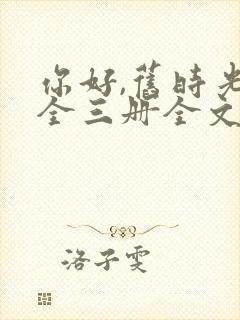 你好,舊時光
全三册全文
洛子雯